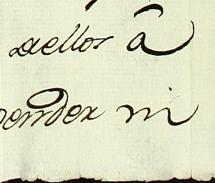 dellos â
pender ni